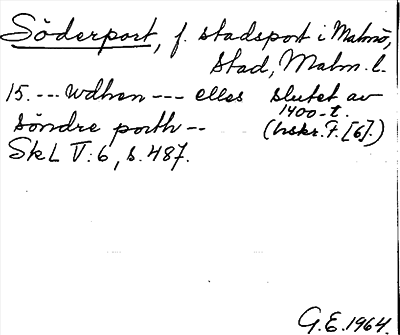 Söderport, f. stadsport i Malmö,
stad, Malm. l.
15. --- wdhen --- elles slutet av
1400-t.
söndre porth -- (hskr. F. [6].)
Sk L V:6, s. 487.
G.E. 1964.